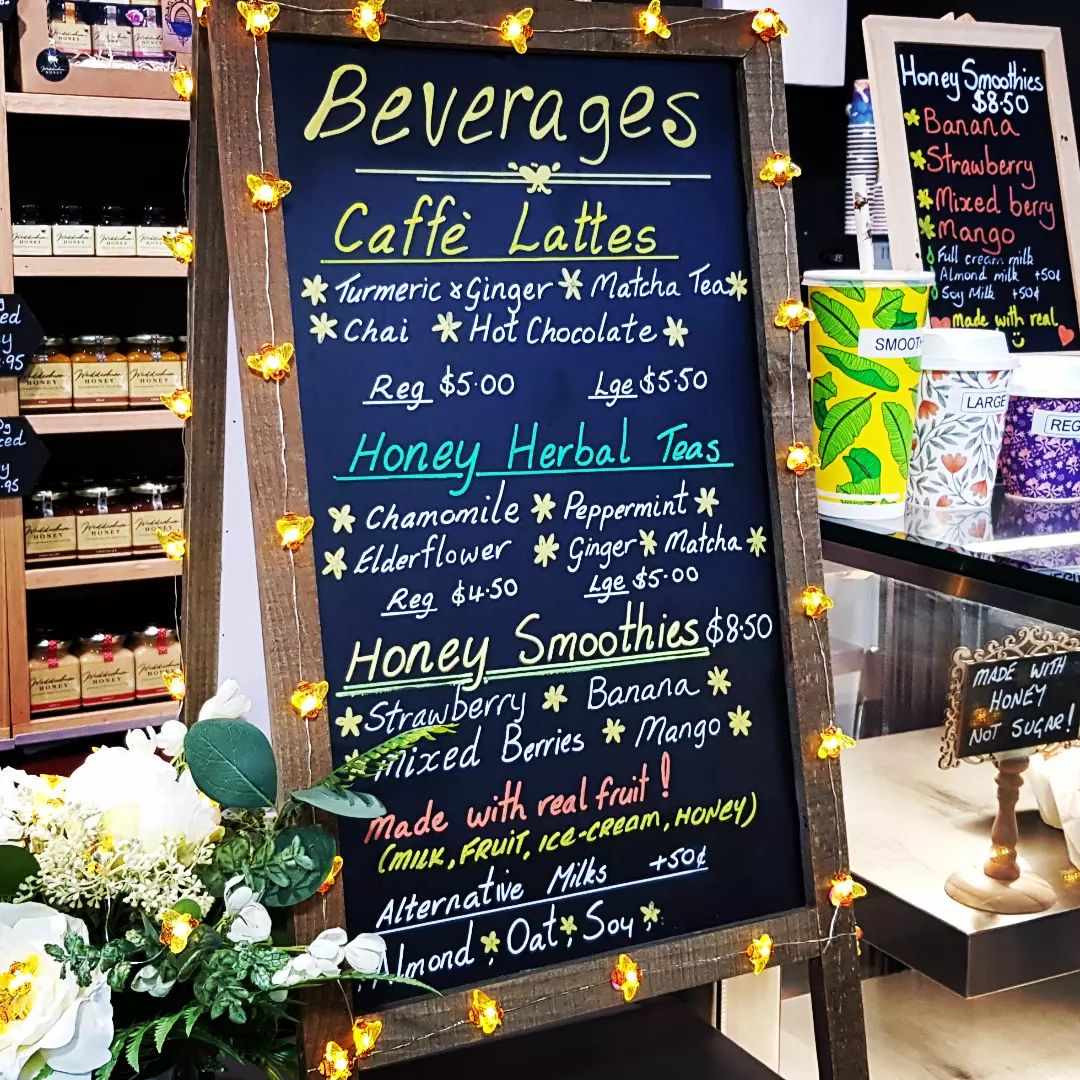 Beverages
Caffè Lattes
Turmeric & Ginger Matcha Tea
Chai Hot Chocolate
Reg $5.00 Lge $5.50
Honey Herbal Teas
Chamomile Peppermint
Elderflower Ginger Matcha
Reg $4.50 Lge $5.00
Honey Smoothies $8.50
Strawberry Banana
Mixed Berries Mango
Made with real fruit!
(MILK, FRUIT, ICE-CREAM, HONEY)
Alternative Milks +50¢
Almond, Oat, Soy
Honey Smoothies
$8.50
Banana
Strawberry
Mixed berry
Mango
Full cream milk
Almond milk +50¢
Soy Milk +50¢
made with real
SMOOTH
LARGE
REG
MADE WITH
HONEY
NOT SUGAR!
HONEY
HONEY
HONEY
HONEY
HONEY
HONEY
HONEY
HONEY